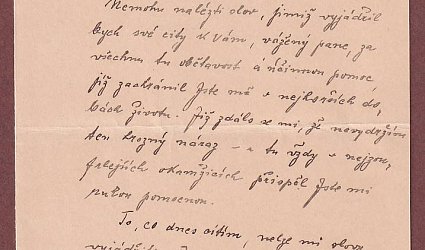 Nemohu nalézti slov, jimiž vyjádřil
bych své city k Vám, vážený pane, za
všechnu tu obětavost a účinnou pomoc,
již zachránil jste mě v nejhorších do-
bách života. Již zdálo se mi, že nevydržím
ten hrozný náraz – a tu vždy v nejzou-
falejších okamžicích přispěl jste mi
pomocnou.
To, co dnes cítím, nelze mi slovy